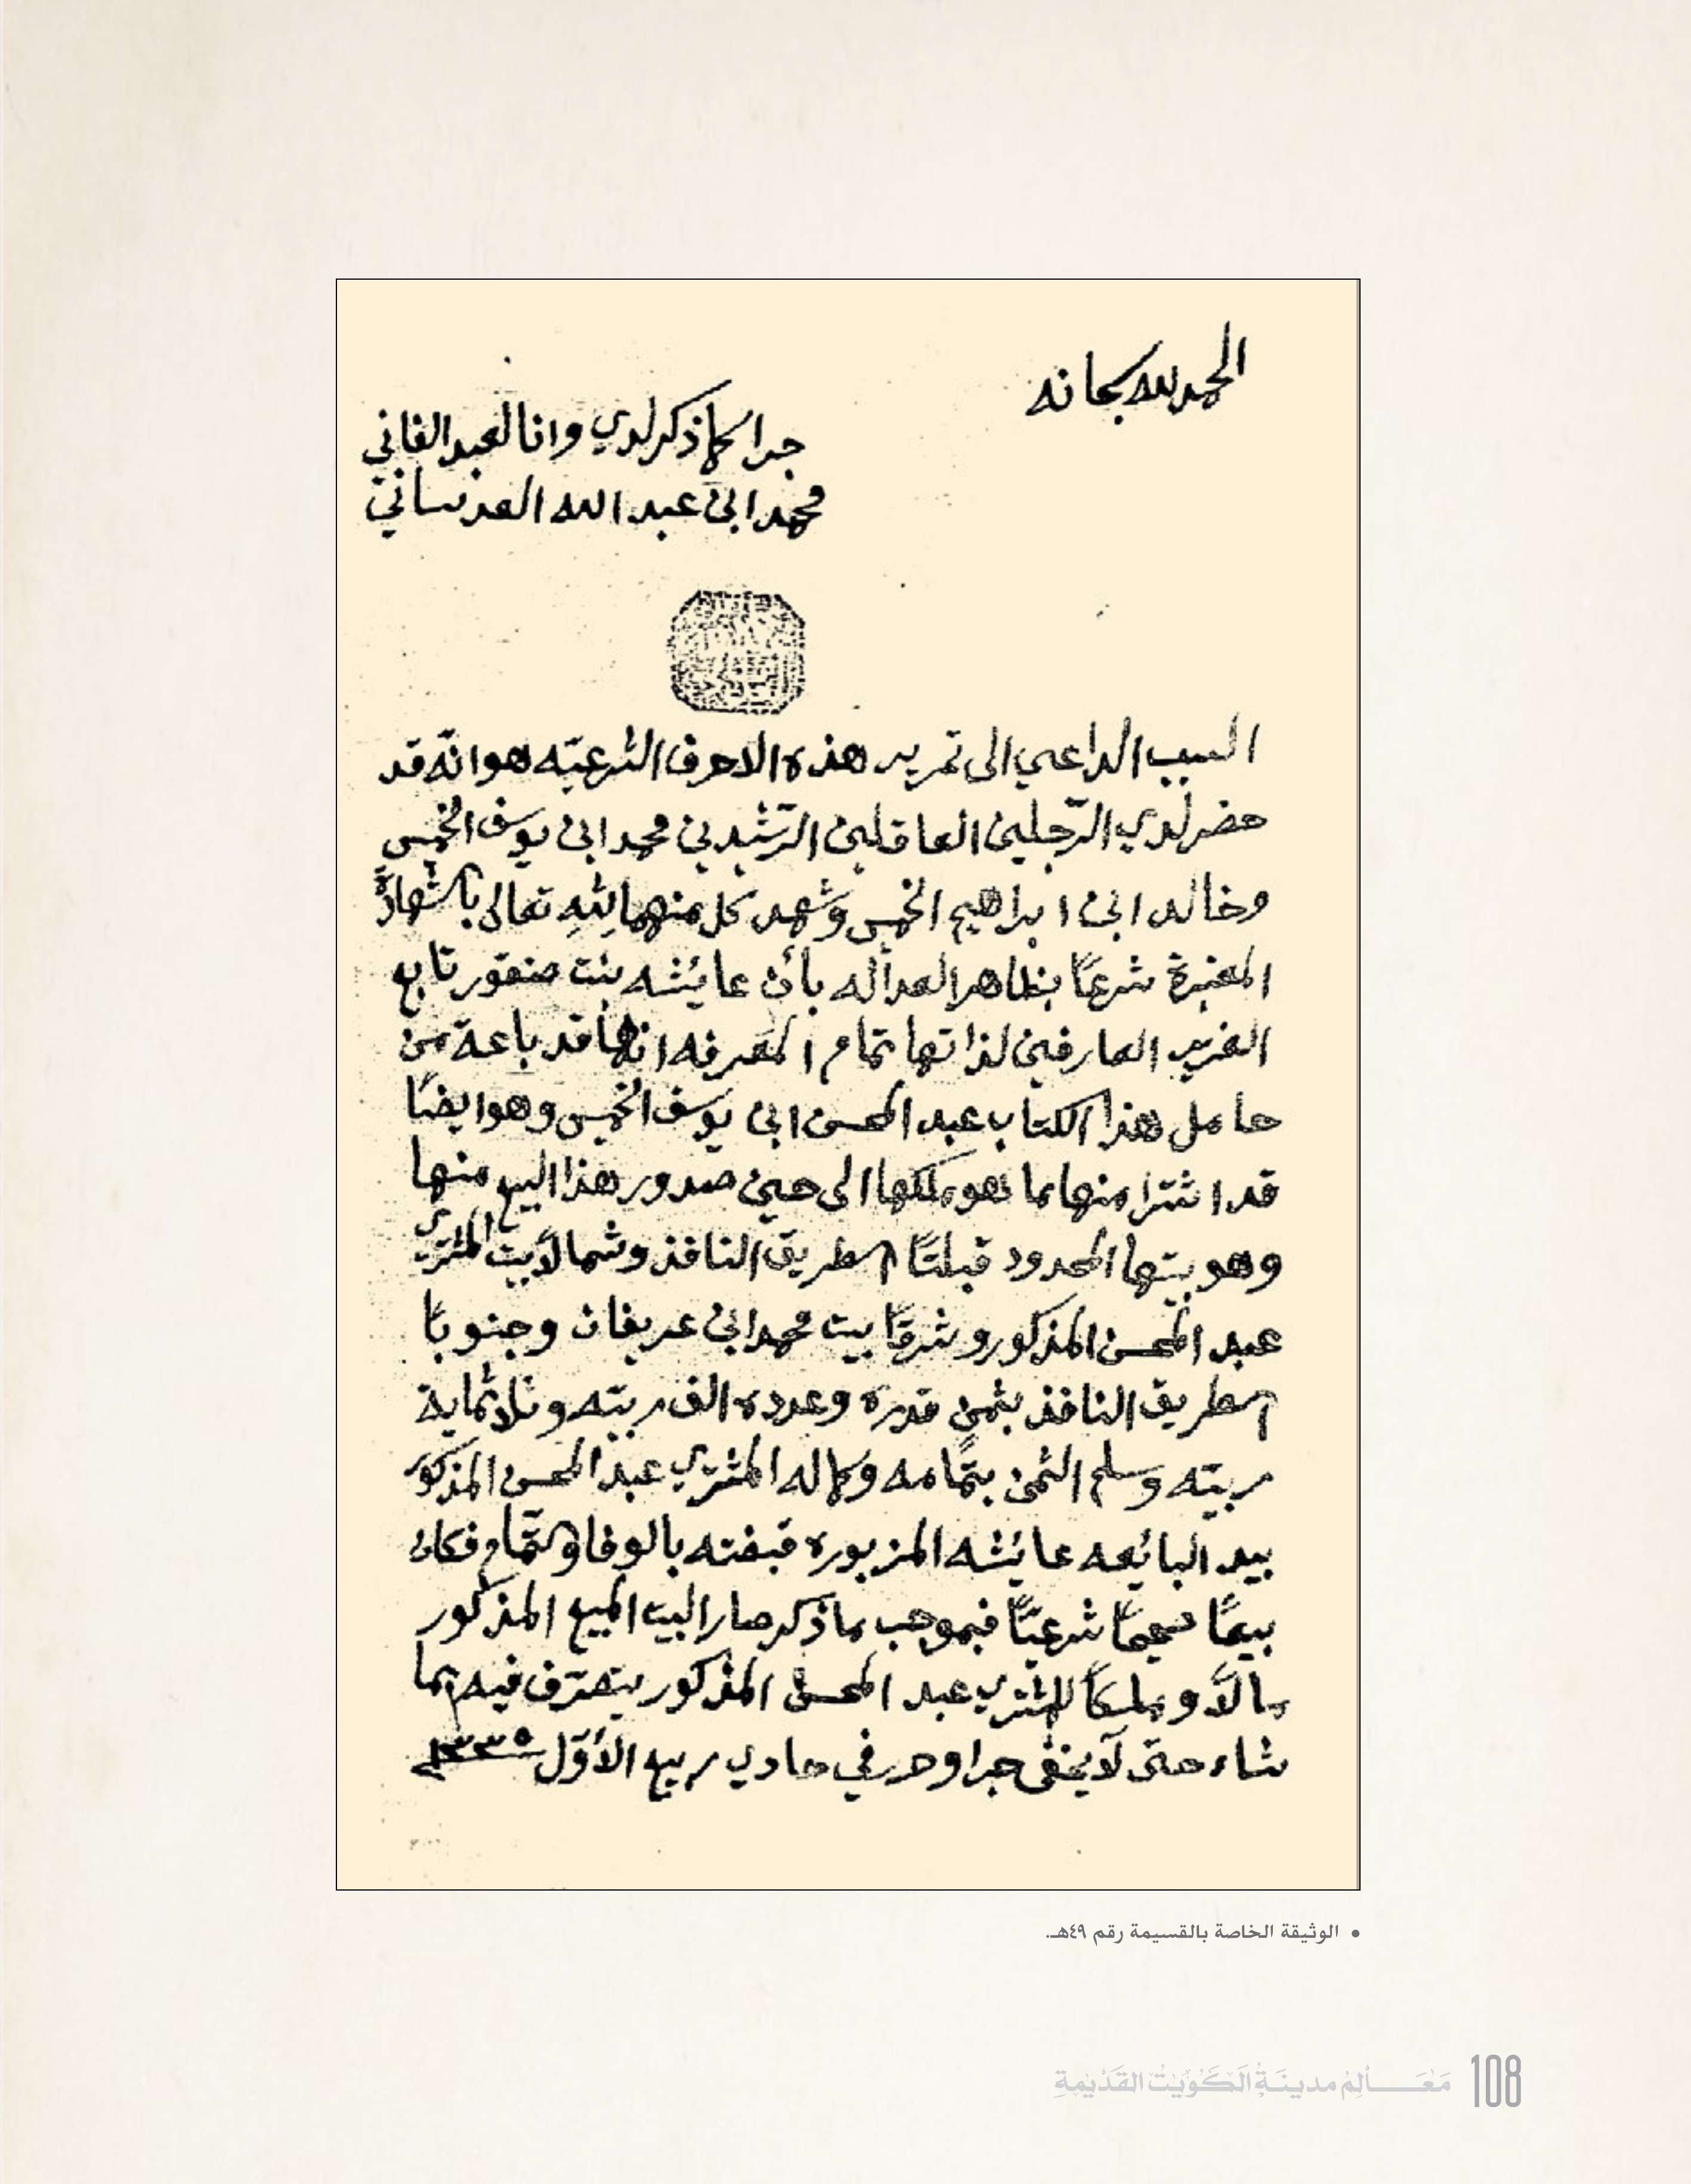 الحمد لله سبحانه
جرا كما ذكر لدي وانا العبد الفاني
محمد ابن عبد الله العدساني
السبب الداعي الى تحرير هذه الاحرف الشرعيّه هو انّه قد
حضر لدي الرّجلين العاقلين الرّشيدين محمد ابن يوسف الخميس
وخالد ابن ابراهيم الخميس وشهد كل منهما لله تعالى بالشهادة
المعتبرة شرعًا بظاهر العداله بأن عايشه بنت صنقور تابع
الغريب العارفين لذاتها تمام المعرفه انها قد باعة من
حامل هذا الكتاب عبد المحسن ابن يوسف الخميس وهو ايضًا
قد اشترا منها ما هو ملكها الى حين صدور هذا البيع منها
وهو بيتها المحدود قبلتًا الطريق النافذ وشمالًا بيت المشتري
عبد المحسن المذكور وشرقًا بيت محمد ابن عريفان وجنوبًا
الطريق النافذ بثمن قدره وعدده الف ربيّه وثلاثماية
ربيّه وسلم الثمن بتمامه وكماله المشتري عبد المحسن المذكور
بيد البائعه عايشه المزبوره قبضته بالوفا والتّمام فكان
بيعًا صحيحًا شرعيًّا فبموجب ما ذكر صار البيت المبيع المذكور
مالًا وملكًا للمشتري عبد المحسن المذكور يتصرّف فيه بما
شاء حتى لا يخفى جرا وحرر في حادي ربيع الأوّل ١٣٣٥
• الوثيقة الخاصة بالقسيمة رقم ٤٩هـ.
مَعَـــالِمُ مدينَةِ الكُوَيْتُ القَدْيمةِ 108